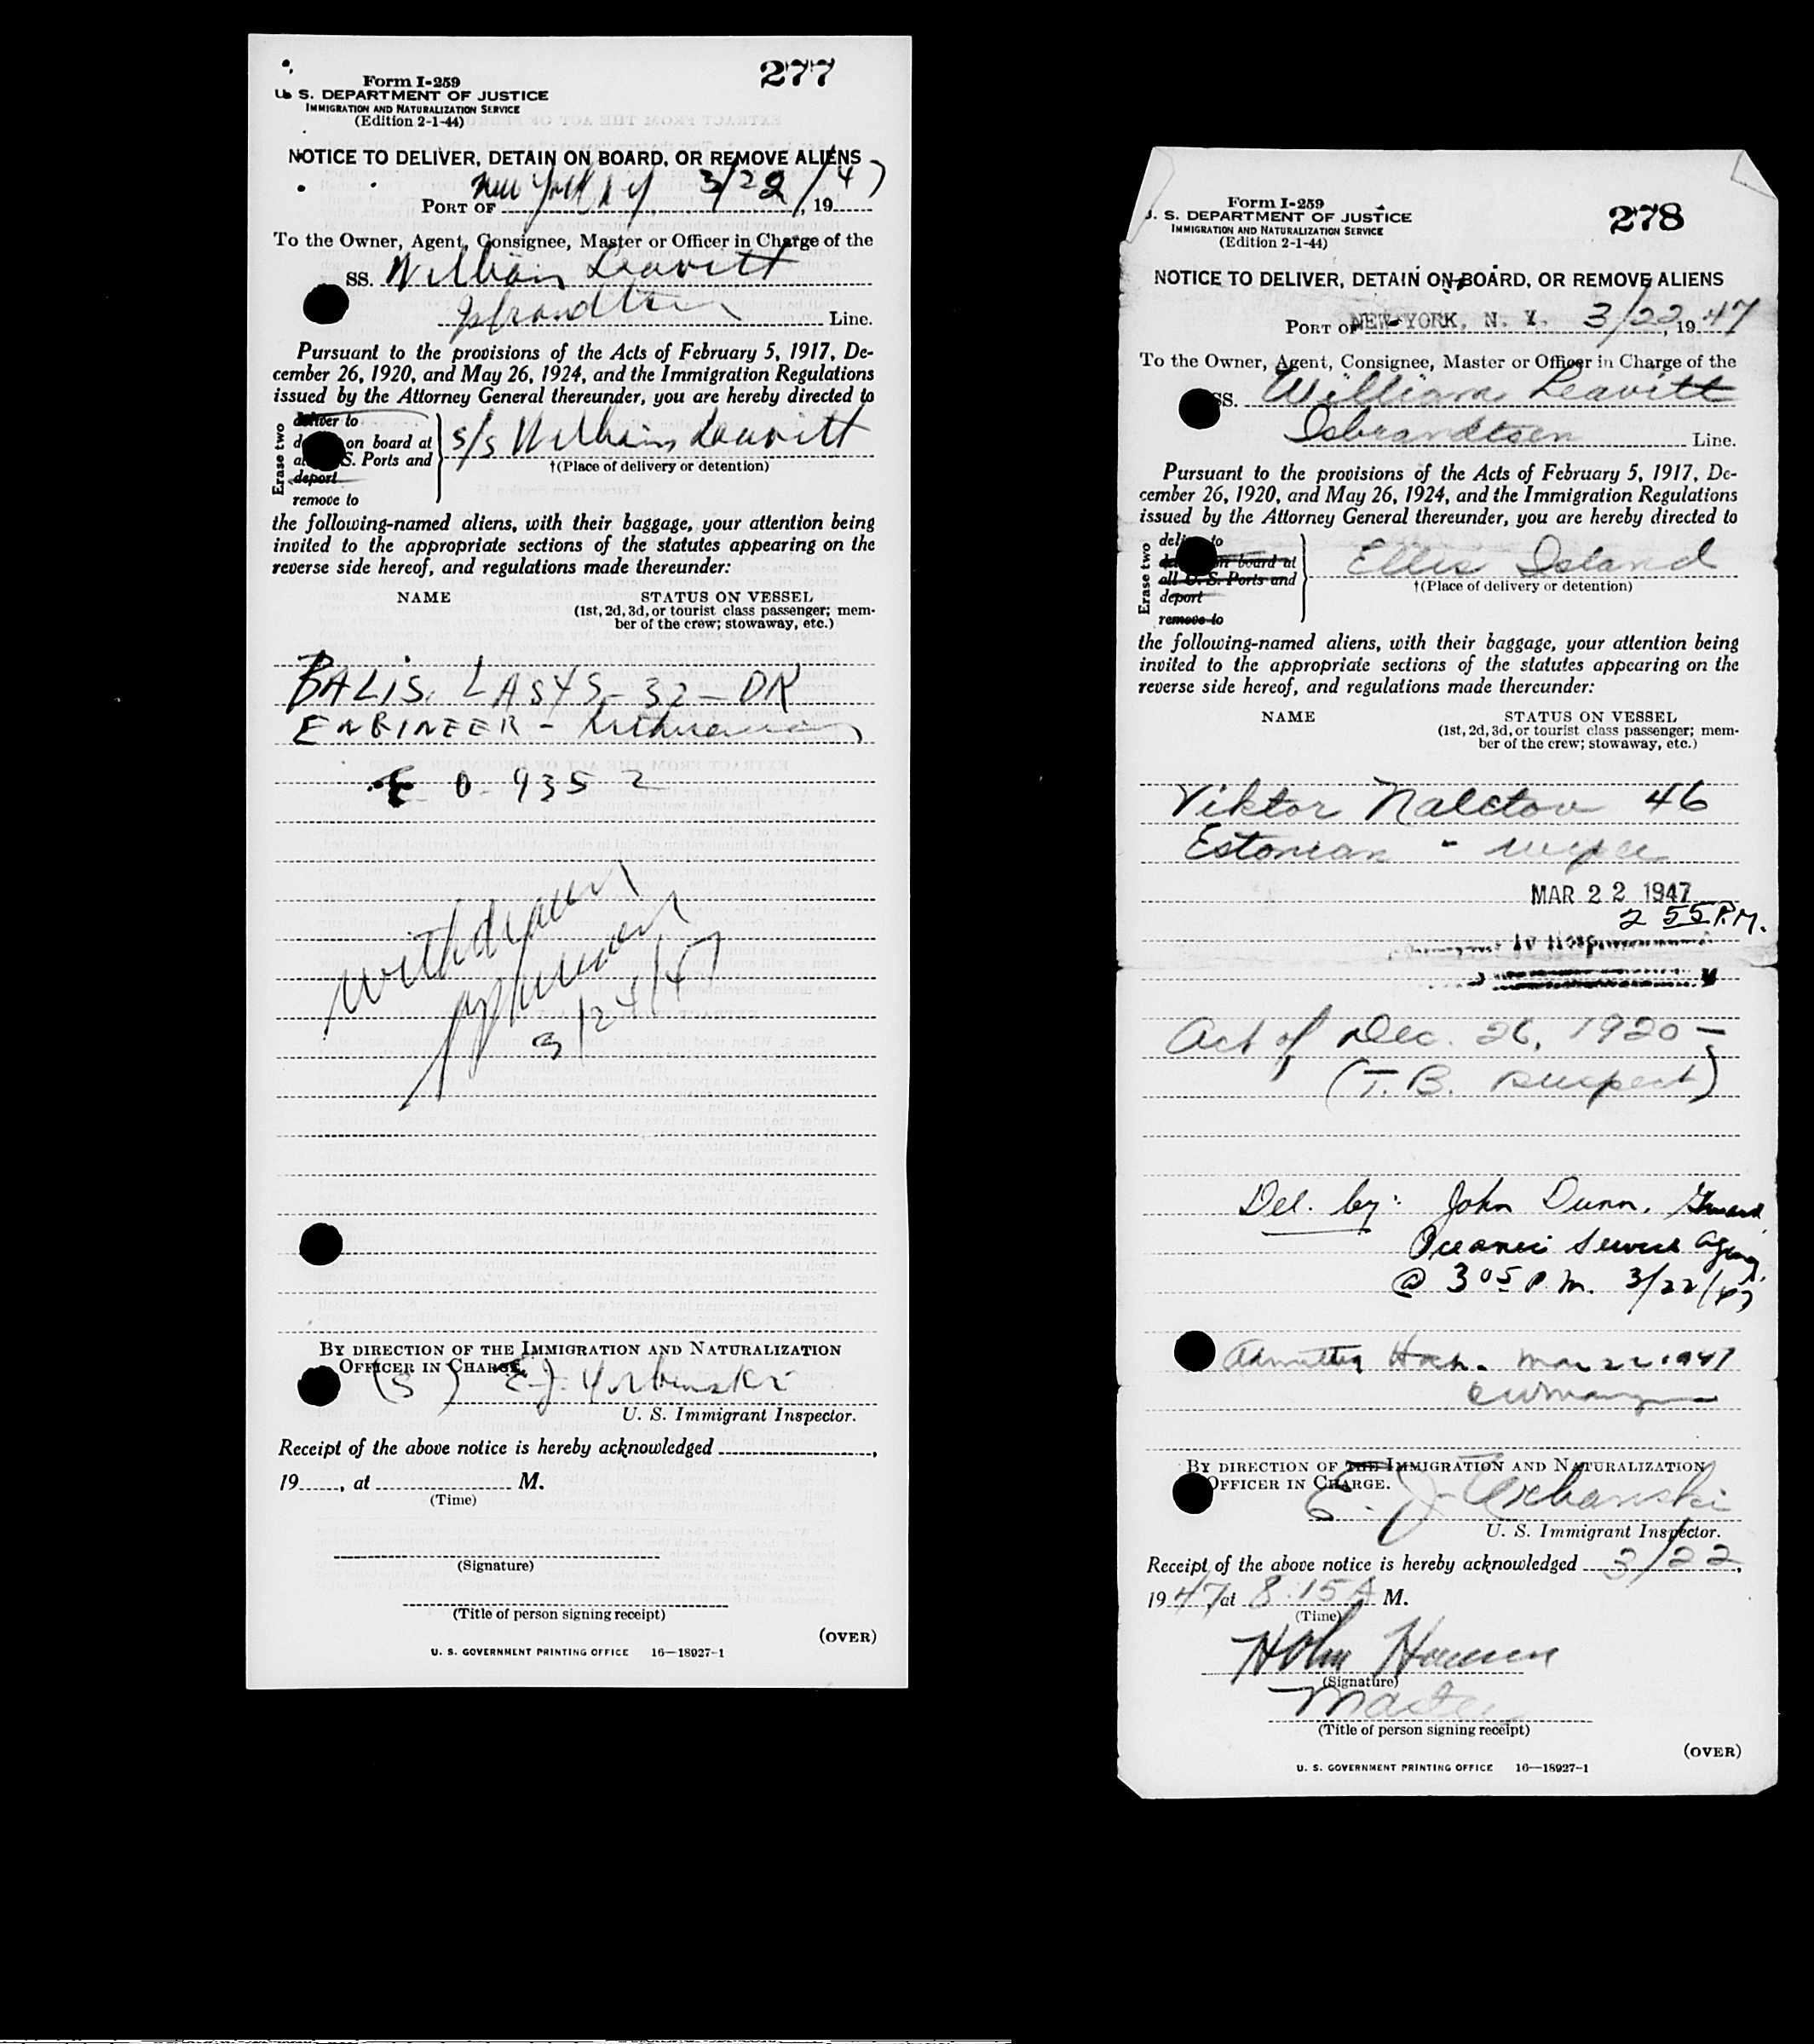 277
Form I-259
U. S. DEPARTMENT OF JUSTICE
IMMIGRATION AND NATURALIZATION SERVICE
(Edition 2-1-44)
NOTICE TO DELIVER, DETAIN ON BOARD, OR REMOVE ALIENS
PORT OF New York NY 3/22/47, 19
To the Owner, Agent, Consignee, Master or Officer in Charge of the
SS. William Leavitt
Isbrandtsen Line.
Pursuant to the provisions of the Acts of February 5, 1917, De-
cember 26, 1920, and May 26, 1924, and the Immigration Regulations
issued by the Attorney General thereunder, you are hereby directed to
Erase two
deliver to
on board at
S. Ports and
deport
remove to
s/s William Leavitt
†(Place of delivery or detention)
the following-named aliens, with their baggage, your attention being
invited to the appropriate sections of the statutes appearing on the
reverse side hereof, and regulations made thereunder:
NAME STATUS ON VESSEL
(1st, 2d, 3d, or tourist class passenger; mem-
ber of the crew; stowaway, etc.)
BALIS. LASYS - 32 - DK
ENGINEER - Lithuanian
0-9352
Withdrawn
3/24/47
BY DIRECTION OF THE IMMIGRATION AND NATURALIZATION
OFFICER IN CHARGE.
(S) E. J. Urbanski
U. S. Immigrant Inspector.
Receipt of the above notice is hereby acknowledged
19, at M.
(Time)
(Signature)
(Title of person signing receipt)
(OVER)
U. S. GOVERNMENT PRINTING OFFICE 16—18927-1
278
Form I-259
U. S. DEPARTMENT OF JUSTICE
IMMIGRATION AND NATURALIZATION SERVICE
(Edition 2-1-44)
NOTICE TO DELIVER, DETAIN ON BOARD, OR REMOVE ALIENS
PORT OF NEW YORK, N. Y. 3/22, 19 47
To the Owner, Agent, Consignee, Master or Officer in Charge of the
SS. William Leavitt
Isbrandtsen Line.
Pursuant to the provisions of the Acts of February 5, 1917, De-
cember 26, 1920, and May 26, 1924, and the Immigration Regulations
issued by the Attorney General thereunder, you are hereby directed to
Erase two
deliver to
on board at
all U. S. Ports and
deport
remove to
Ellis Island
†(Place of delivery or detention)
the following-named aliens, with their baggage, your attention being
invited to the appropriate sections of the statutes appearing on the
reverse side hereof, and regulations made thereunder:
NAME STATUS ON VESSEL
(1st, 2d, 3d, or tourist class passenger; mem-
ber of the crew; stowaway, etc.)
Viktor Naletov 46
Estonian - wiper
MAR 22 1947
2 55 P.M.
Act of Dec. 26, 1920 -
(T. B. suspect)
Del. by: John Dunn, Guard
Oceanic Service Agency
@ 3 05 P. M. 3/22/47
Admitted Hosp. Mar 22 1947
BY DIRECTION OF THE IMMIGRATION AND NATURALIZATION
OFFICER IN CHARGE.
E. J. Urbanski
U. S. Immigrant Inspector.
Receipt of the above notice is hereby acknowledged 3/22,
19 47, at 8:15 A M.
(Time)
Holm Hansen
(Signature)
Master
(Title of person signing receipt)
(OVER)
U. S. GOVERNMENT PRINTING OFFICE 16—18927-1